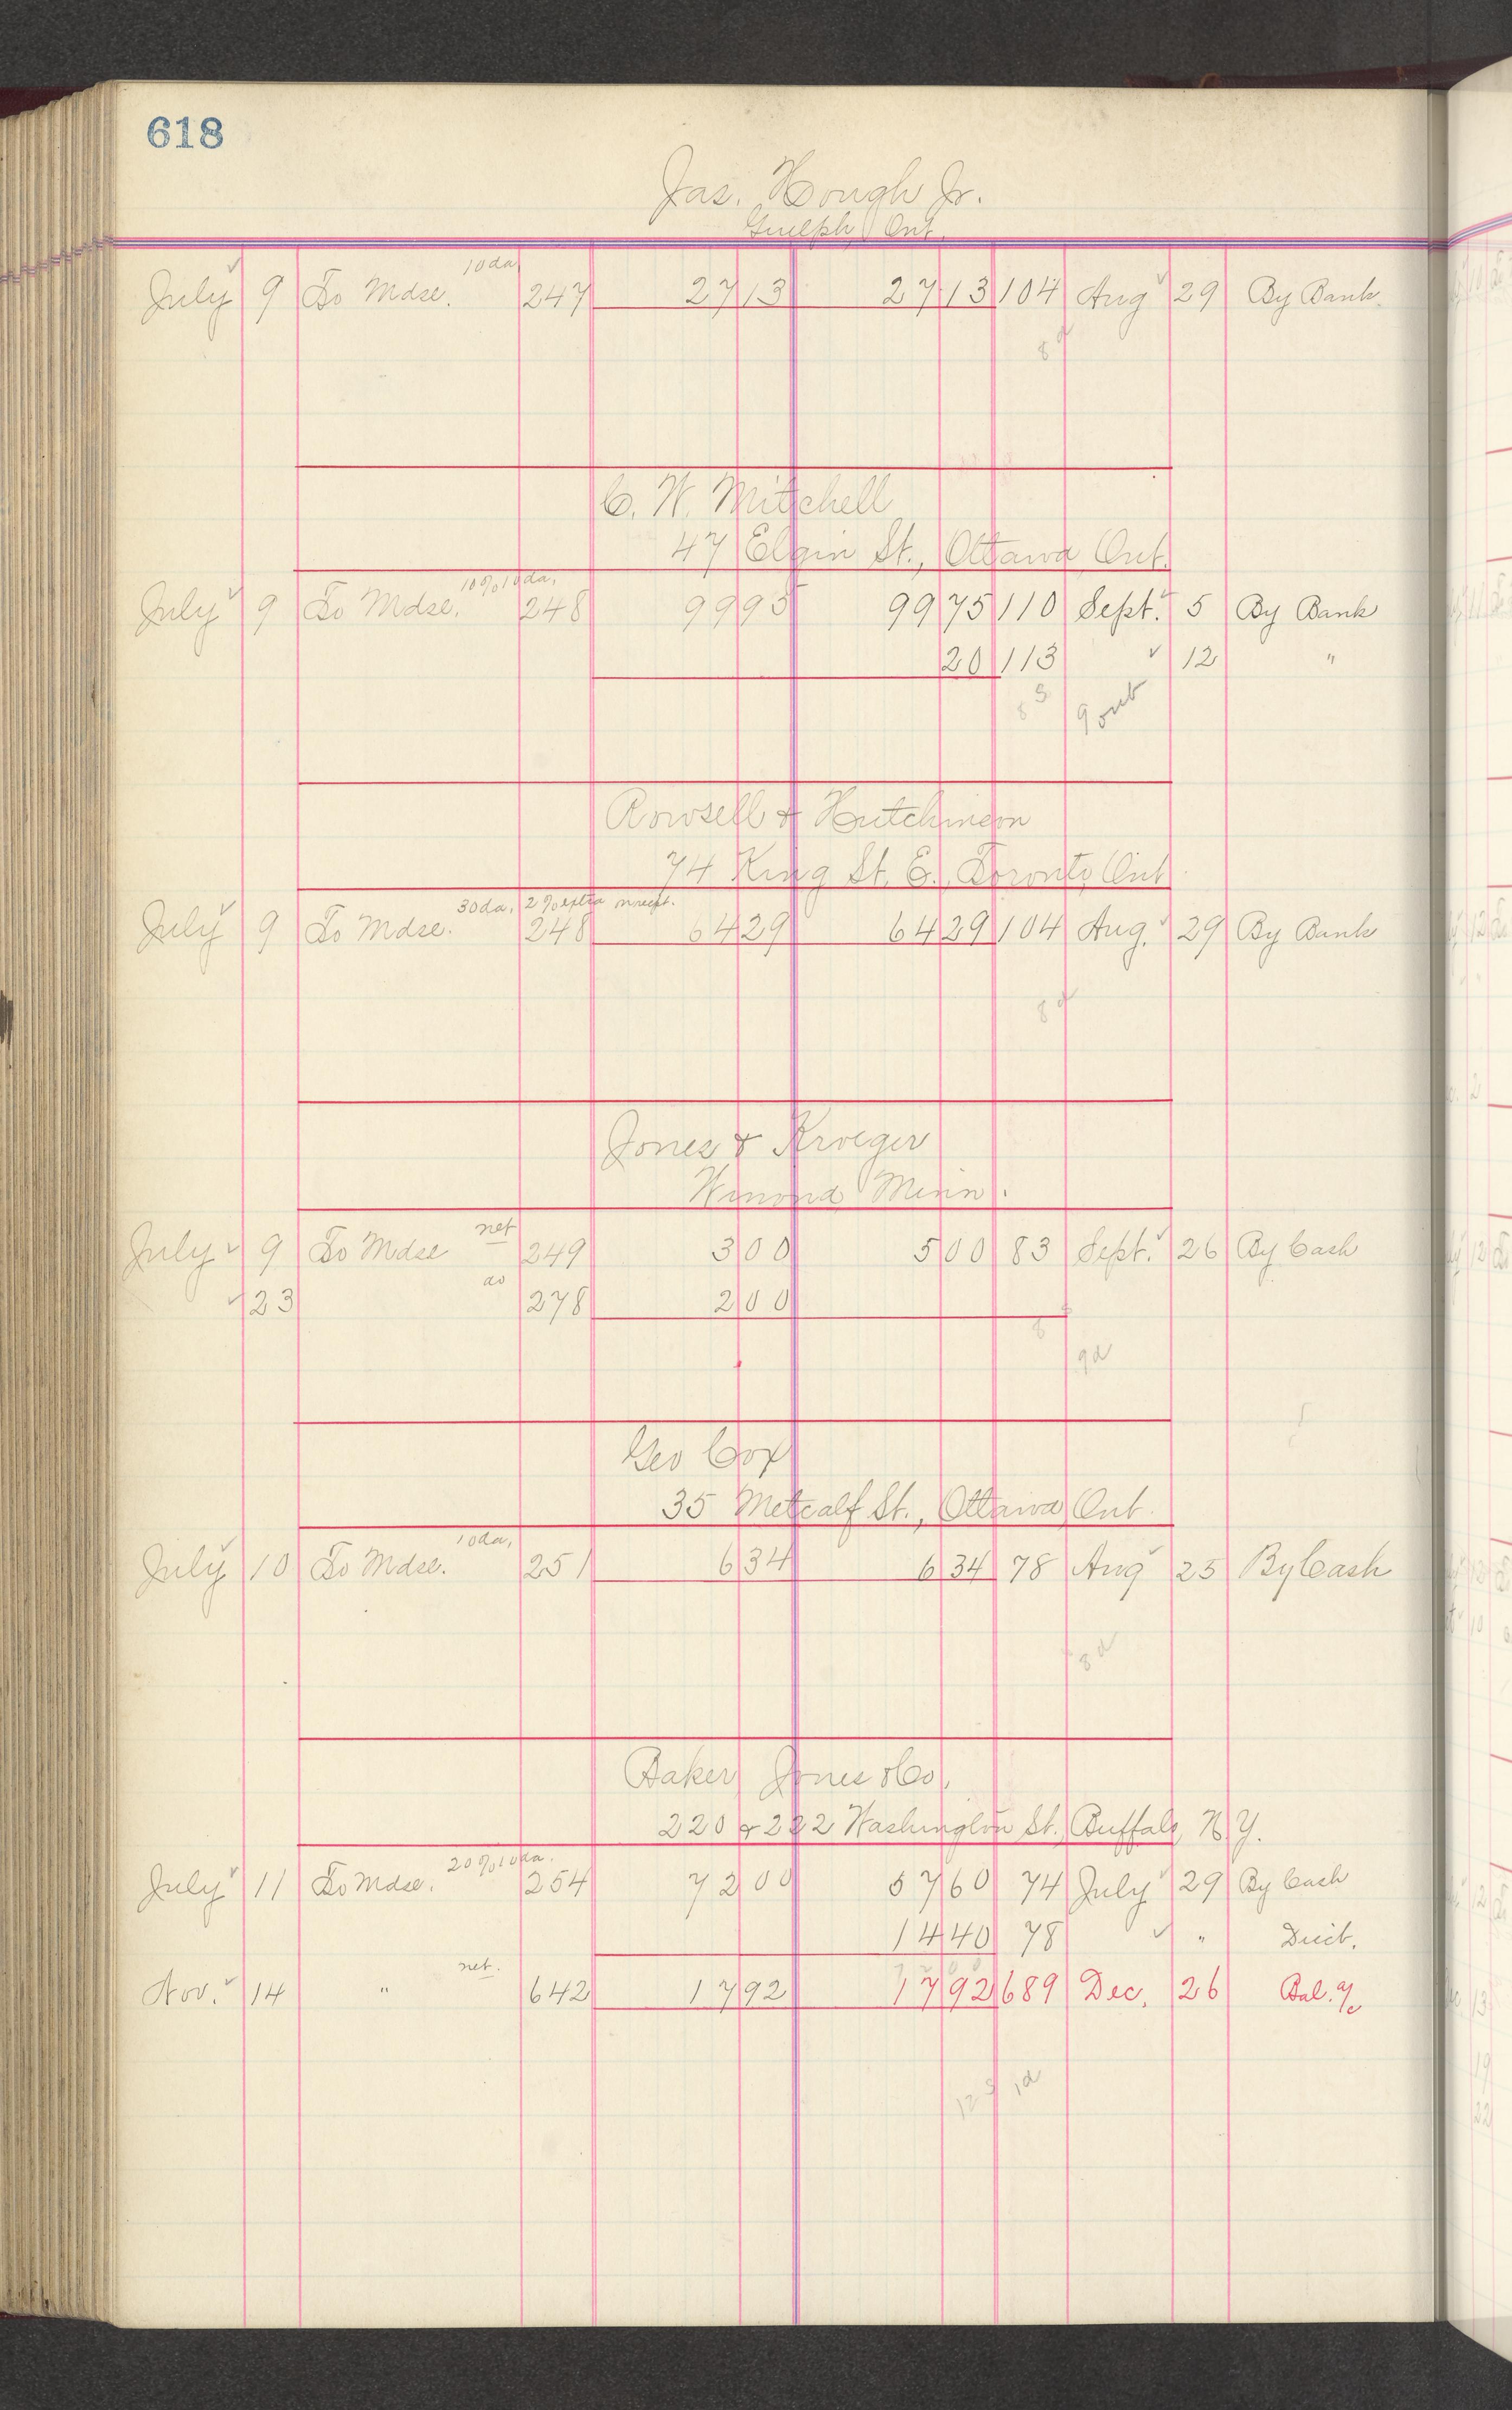 618
Jas. Hough Jr.
Guelph, Ont.
10 da.
July 9 To Mdse. 247 27 13 27 13 104 Aug 29 By Bank
8 d
C. W. Mitchell
47 Elgin St., Ottawa Ont.
10% 10 da.
July 9 To Mdse. 248 99 95 99 75 110 Sept. 5 By Bank
20 113 12 "
8 s 9 out
Rowsell & Hutchinson
74 King St. E. Toronto Ont
30 da. 2% extra
July 9 To Mdse. 248 64 29 64 29 104 Aug. 29 By Bank
8 d
Jones & Kroeger
Winona Minn.
net
July 9 To Mdse 249 3 00 5 00 83 Sept. 26 By Cash
do
23 278 2 00
8
9 d
Geo Cox
35 Metcalf St., Ottawa Ont.
10 da.
July 10 To Mdse. 251 6 34 6 34 78 Aug 25 By Cash
8 d
Baker, Jones & Co.
220 & 222 Washington St. Buffalo, N.Y.
20% 10 da.
July 11 To Mdse. 254 72 00 57 60 74 July 29 By Cash
14 40 78 " Disct.
72 00
net.
Nov. 14 " 642 17 92 17 92 689 Dec. 26 Bal. a/c
12 s 1 d